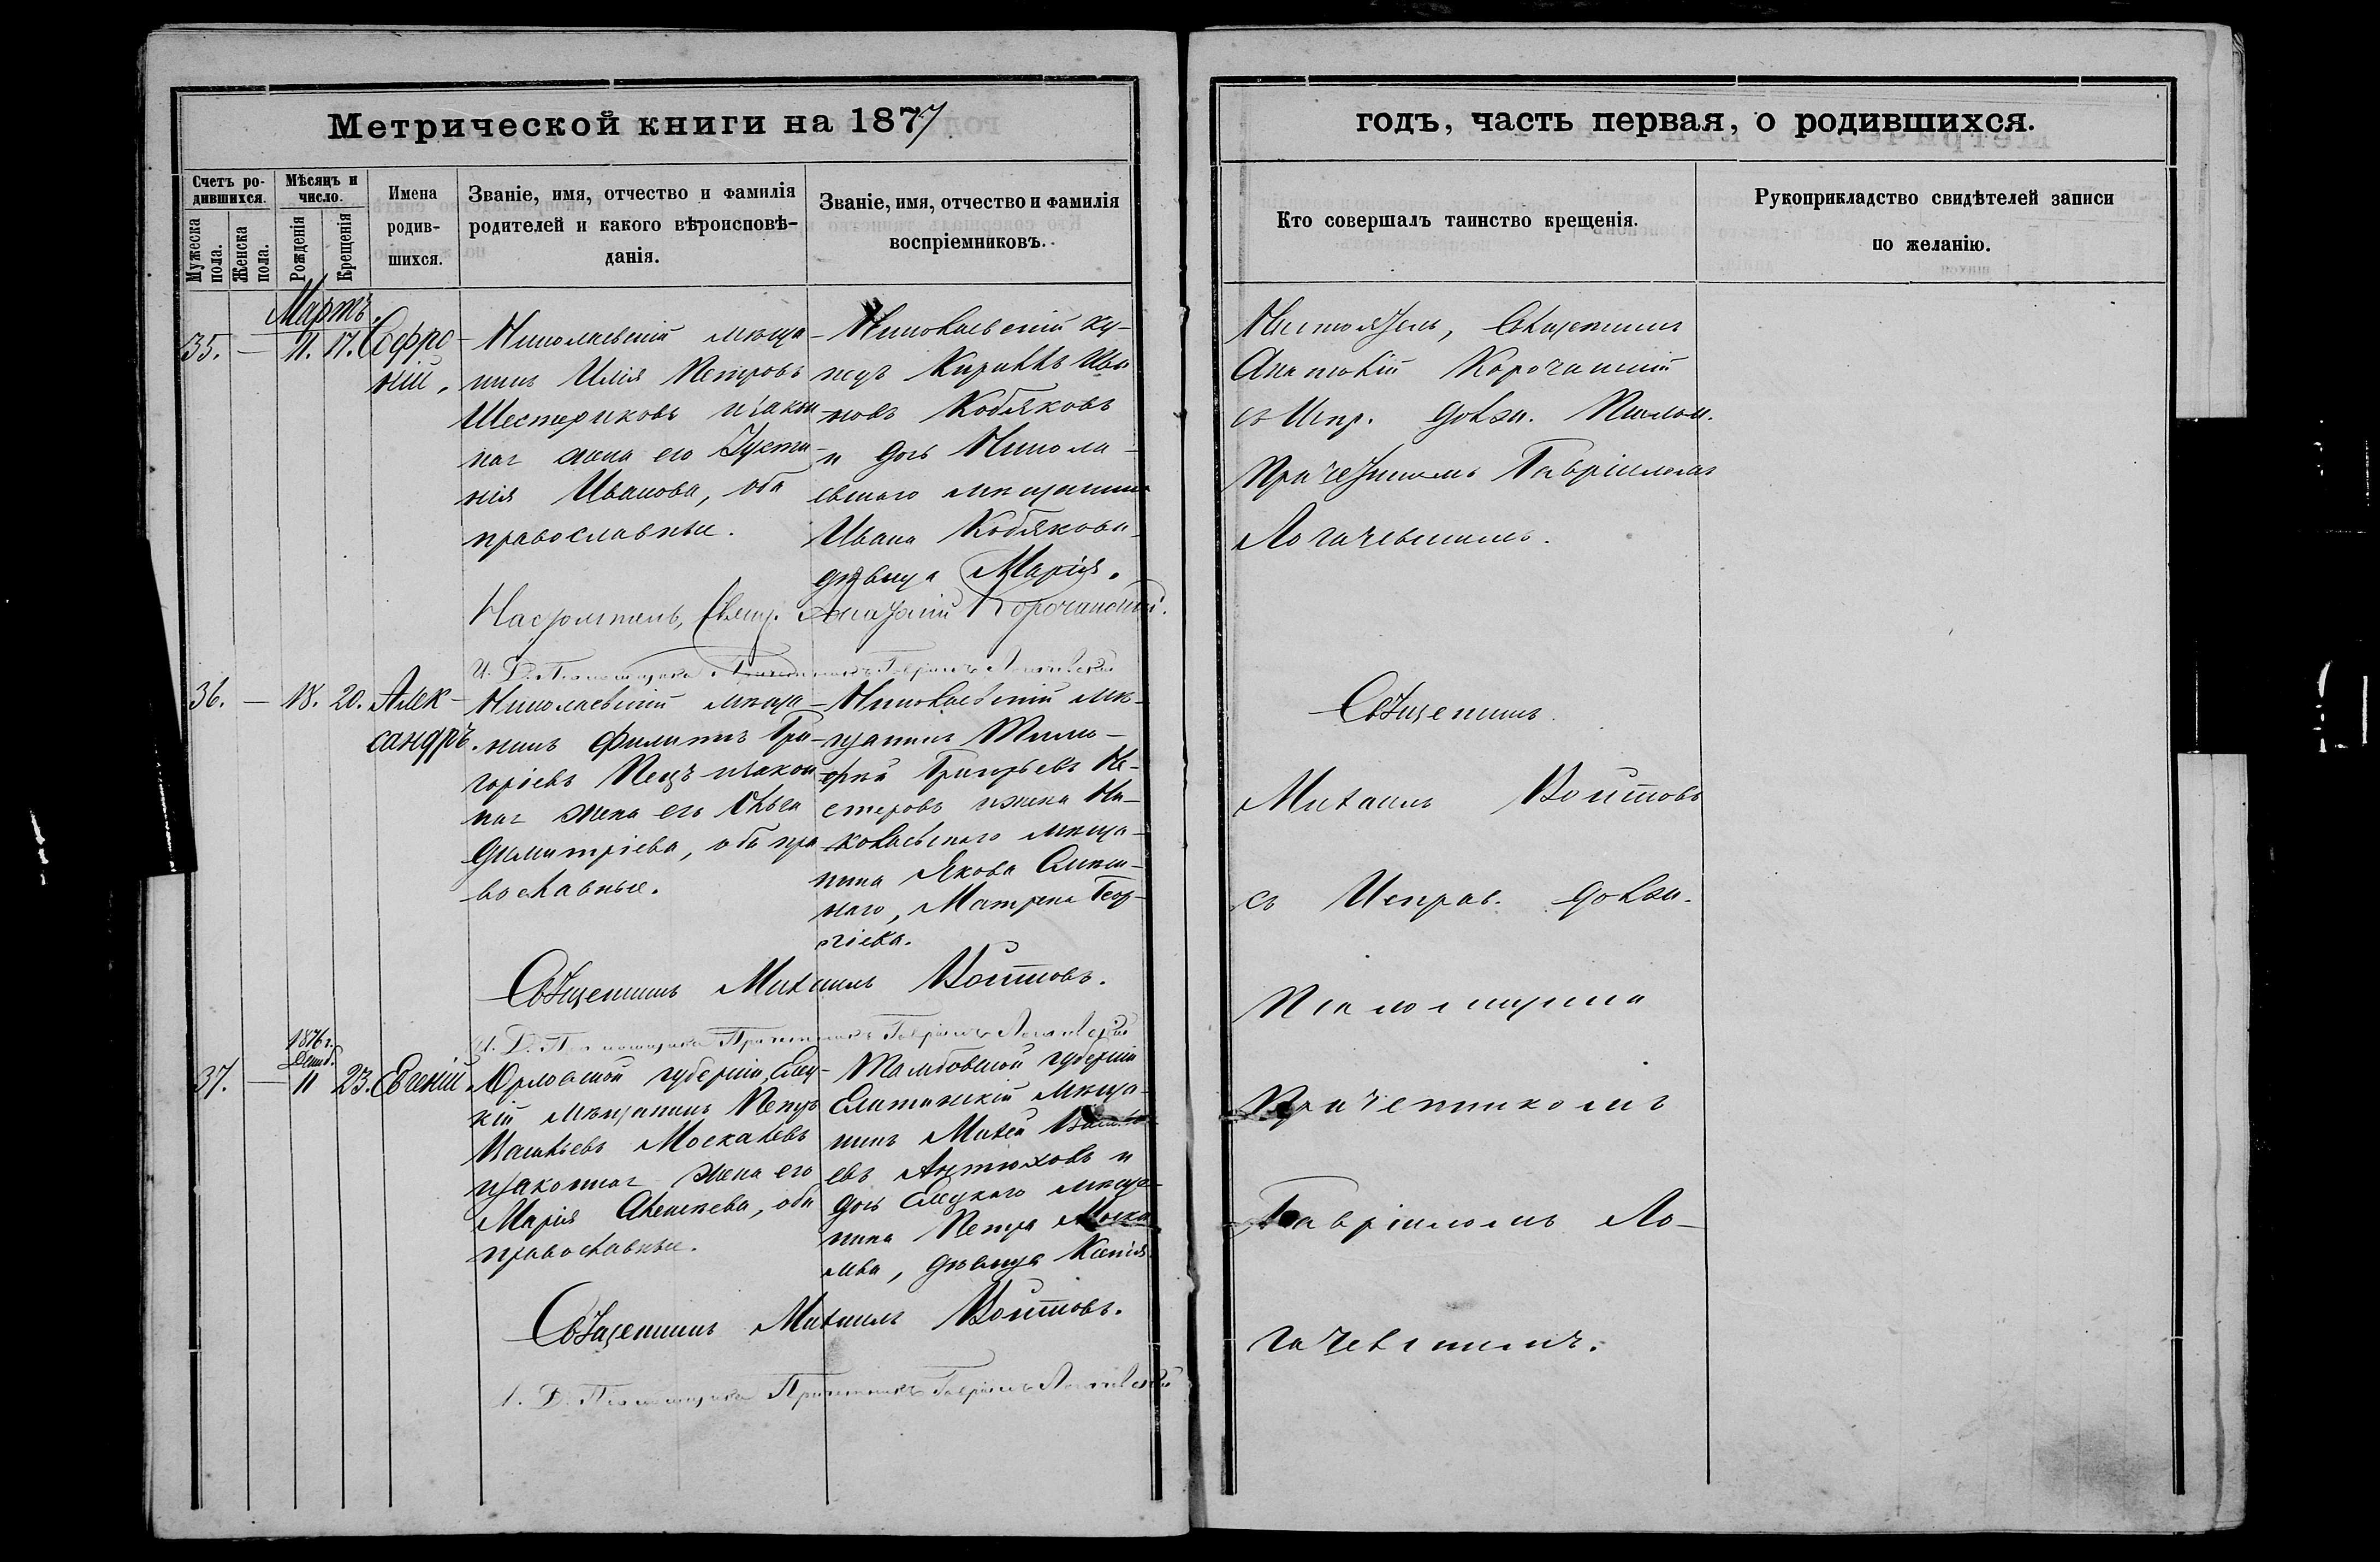 Метрической книги на 1877
Счетъ ро-
дившихся.
Мужеска пола.
Женска пола.
Мѣсяцъ и
число.
Рожденія
Крещенія
Имена
родив-
шихся.
Званіе, имя, отчество и фамилія
родителей и какого вѣроисповѣ-
данія.
Званіе, имя, отчество и фамилія
воспріемниковъ.
Мартъ.
35. — 11. 17. Софро
ній.
Николаевскій мѣща-
нинъ Илія Петровъ
Шестериковъ и закон
ная жена его Іуста-
нія Иванова, оба
православные.
Николаевскій ку-
пецъ Кириллъ Ива
новъ Кобяковъ
и дочь Никола-
евскаго мѣщанина
Ивана Кобякова
дѣвица Марія.
Настоятель, Свящ. Анатолій Корочанскій.
И. Д. Псаломщика Причетникъ Гавріилъ Логачевскій
36. — 18. 20. Алек-
сандръ.
Николаевскій мѣща-
нинъ Филиппъ Гри-
горіевъ Пецъ и закон
ная жена его
Димитріева, оба пра
вославные.
Николаевскій мѣ-
щанинъ Тимо-
фей Григорьевъ Не-
стеровъ и жена Ни-
колаевскаго мѣща-
нина Якова
наго, Матрена Геор-
гіева.
Священникъ Михаилъ Войтовъ.
И. Д. Псаломщика Причетникъ Гавріилъ Логачевскій
1876 г.
Декаб.
37. — 11 23. Евгеній.
Орловской губерніи, Елец-
кій мѣщанинъ Петръ
Москалевъ
и законная жена его
Марія Алексѣева, оба
православные.
Тамбовской губерніи
Елатомскій мѣща-
нинъ Михей
евъ Антюховъ и
дочь Елецкаго мѣща-
нина Петра Моска
лева, дѣвица Ксенія.
Священникъ Михаилъ Войтовъ.
И. Д. Псаломщика Причетникъ Гавріилъ Логачевскій
годъ, часть первая, о родившихся.
Кто совершалъ таинство крещенія.
Рукоприкладство свидѣтелей записи
по желанію.
Настоятель, Священникъ
Анатолій Корочанскій
съ Испр. должн. Псалом.
Причетникомъ Гавріиломъ
Логачевскимъ.
Священникъ
Михаилъ Войтовъ
съ Исправ. должн.
Псаломщика
Причетникомъ
Гавріиломъ Ло-
гачевскимъ.